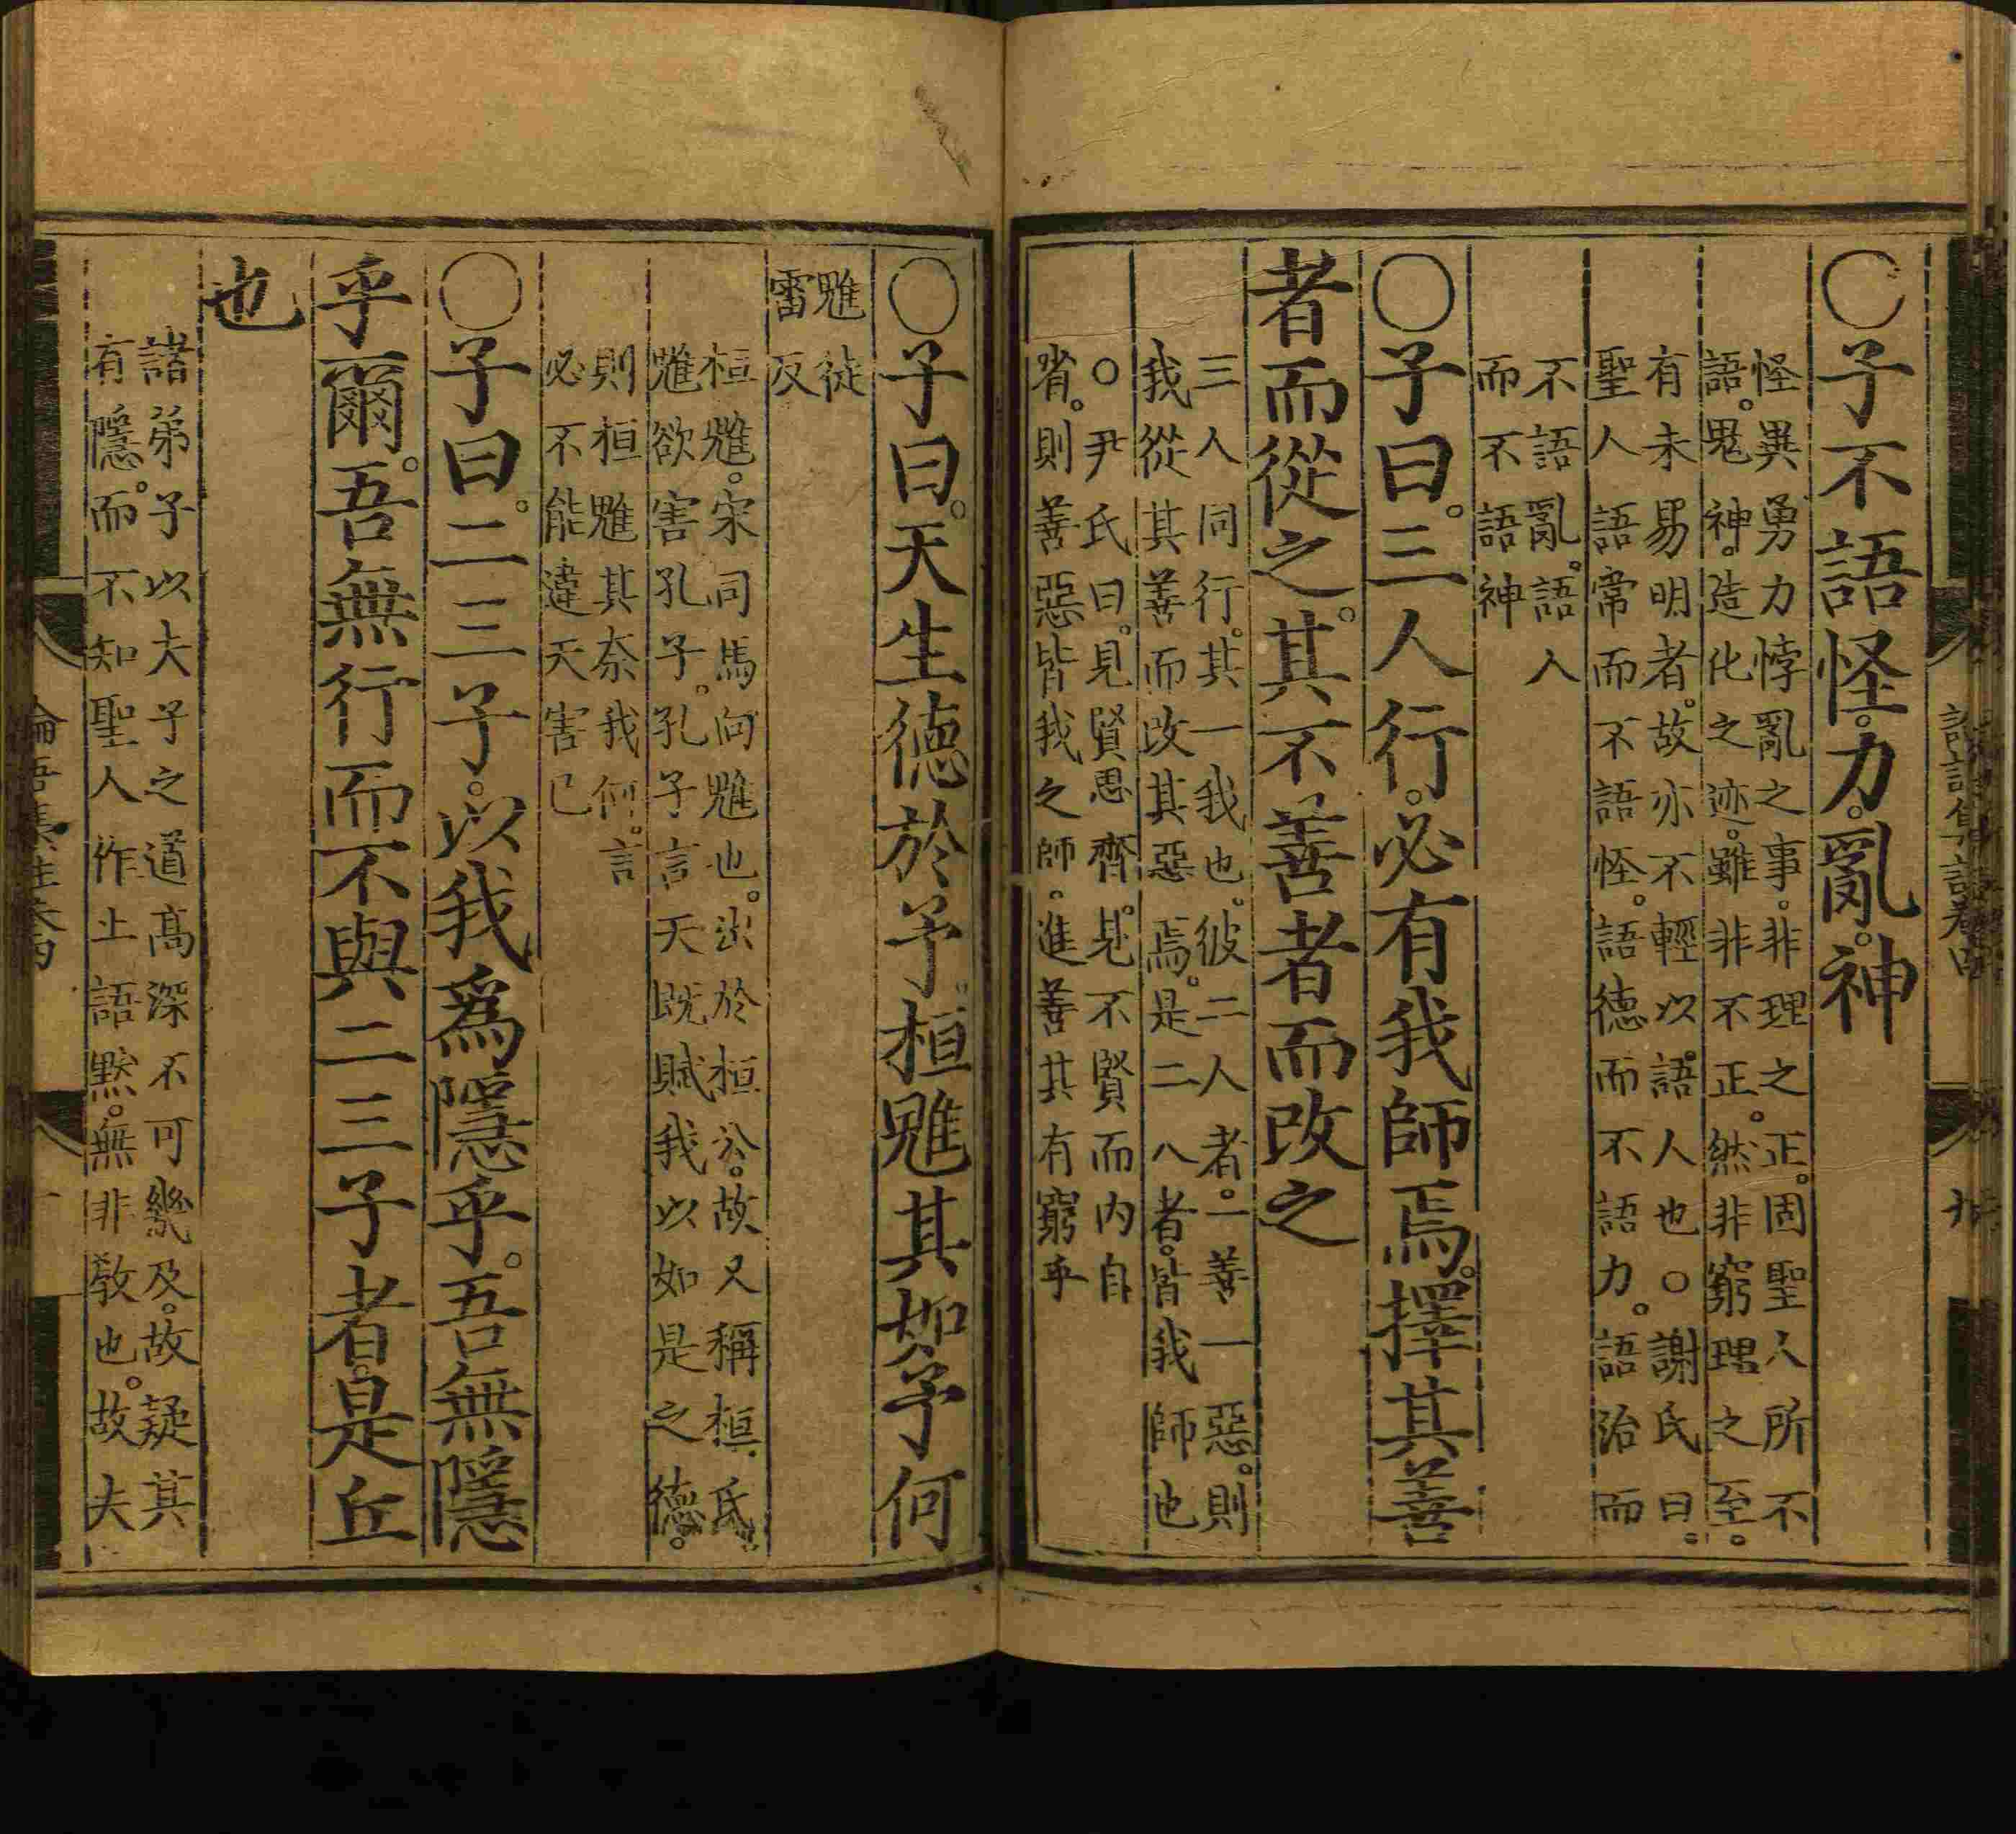 〇子不語怪。力。亂。神
怪異勇力悖亂之事。非理之正。固聖人所不
語。鬼神。造化之迹。雖非不正。然非窮理之至。
有未易明者。故亦不輕以語人也〇謝氏曰。
聖人語常而不語怪。語德而不語力。語治而
不語亂。語人
而不語神
〇子曰。三人行。必有我師焉。擇其善
者而從之。其不善者而改之
三人同行。其一我也。彼二人者。一善一惡。則
我從其善而改其惡焉。是二人者。皆我師也
〇尹氏曰。見賢思齊。見不賢而內自
省。則善惡皆我之師。進善其有窮乎
〇子曰。天生德於予。桓魋其如予何
魋徒
雷反
桓魋。宋司馬向魋也。出於桓公。故又稱桓氏。
魋欲害孔子。孔子言天旣賦我以如是之德。
則桓魋其奈我何。言
必不能違天害己
〇子曰。二三子。以我爲隱乎。吾無隱
乎爾。吾無行而不與二三子者。是丘
也
諸弟子以夫子之道高深不可幾及。故疑其
有隱。而不知聖人作止語默。無非敎也。故夫